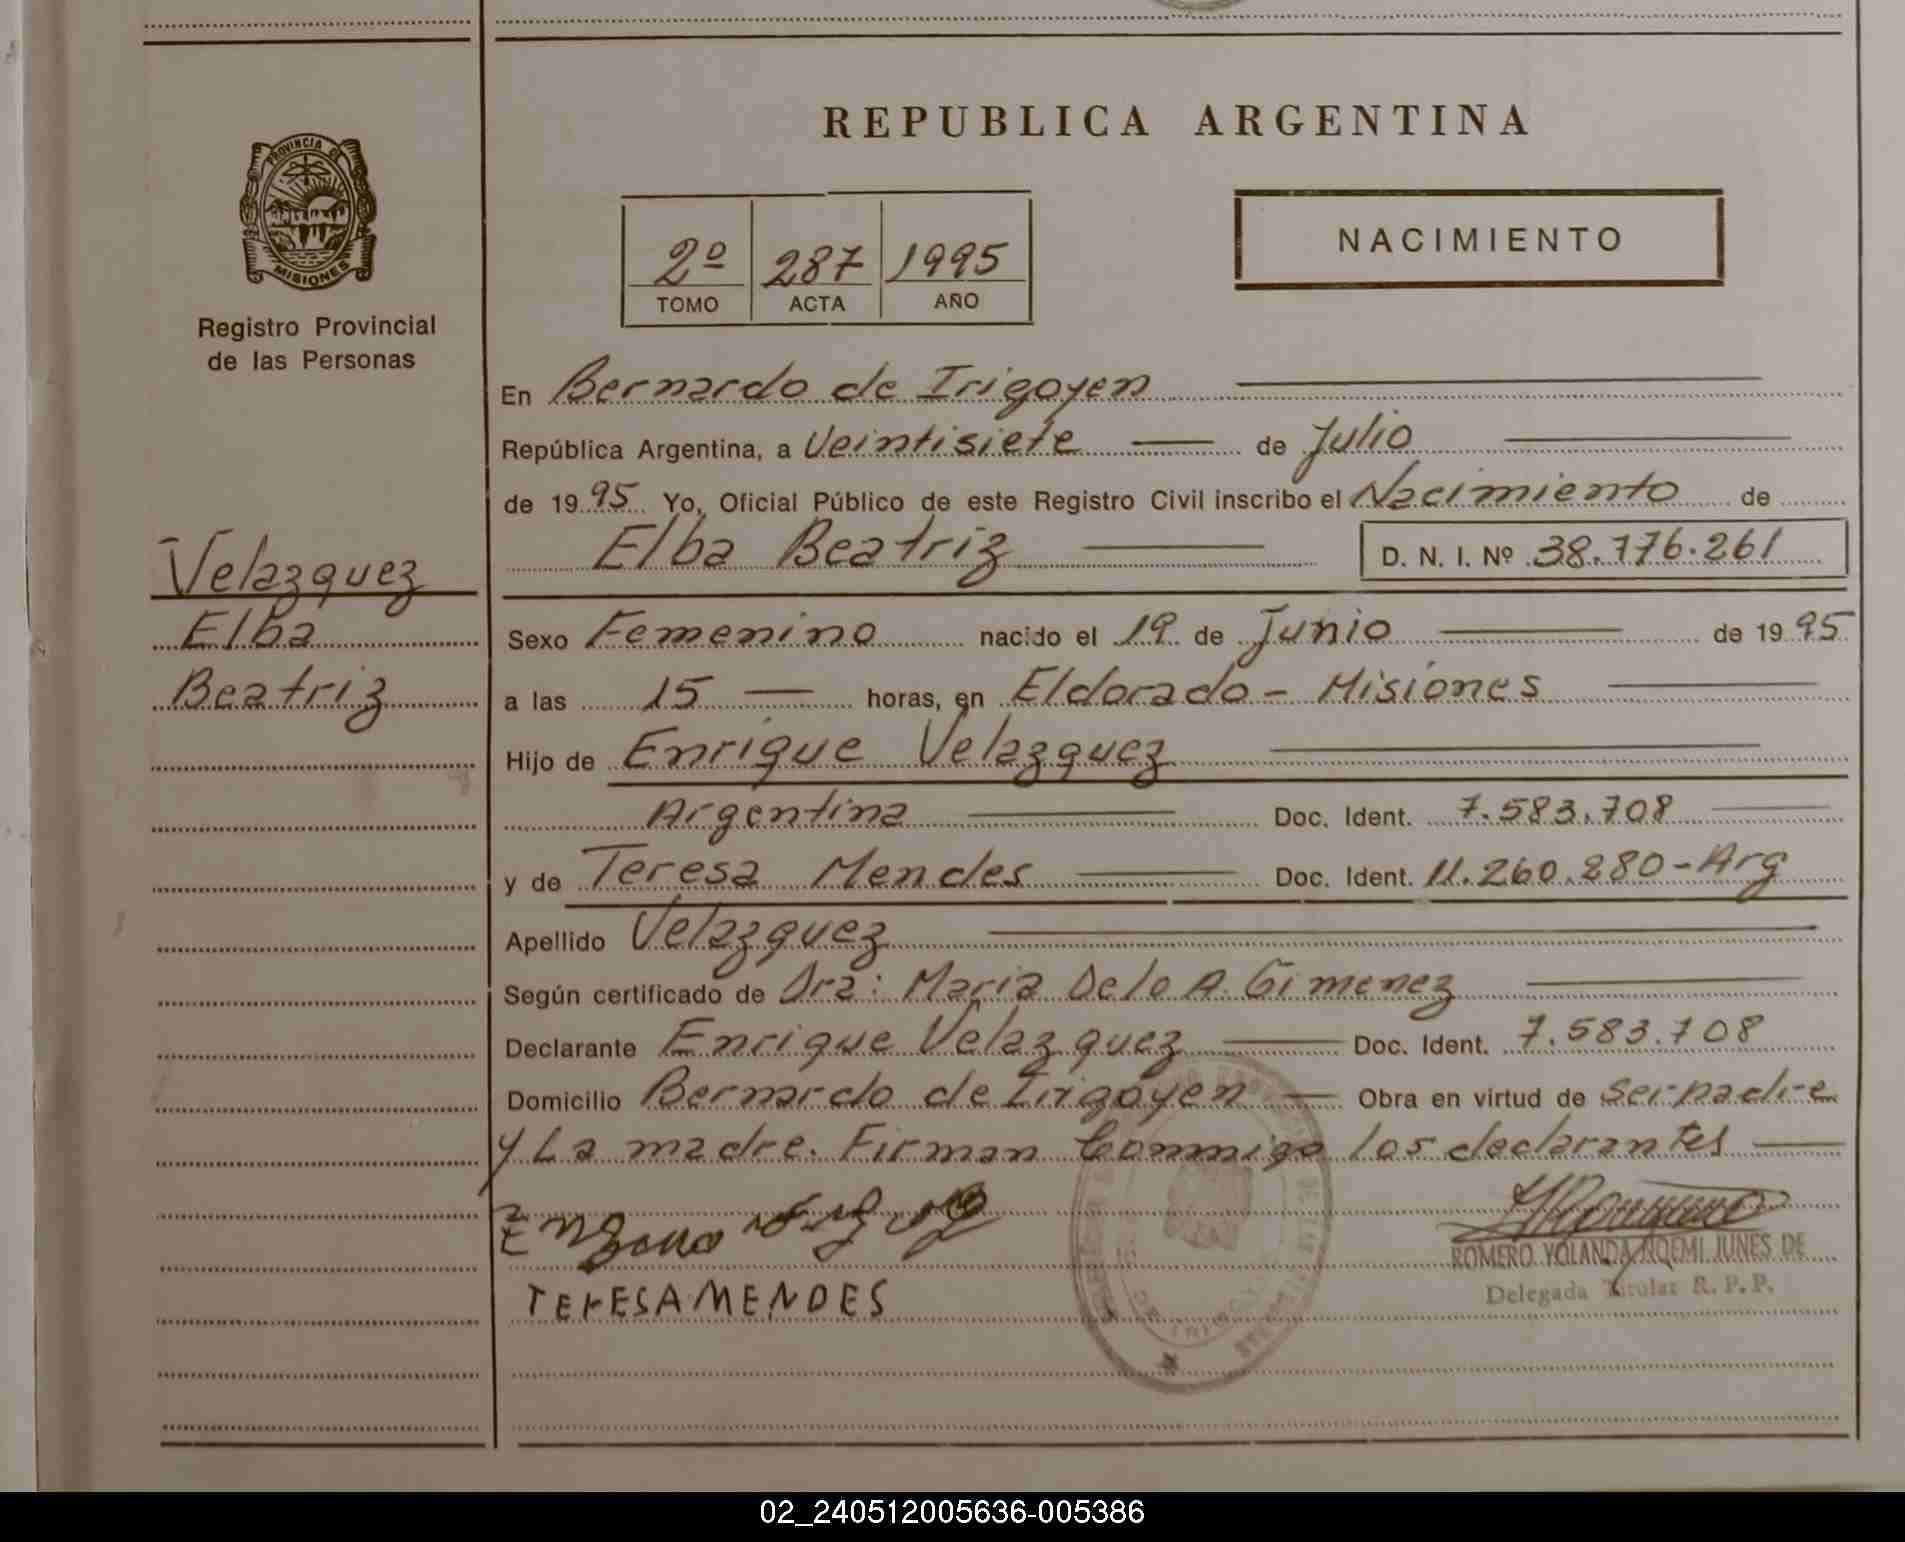 REPUBLICA ARGENTINA
PROVINCIA DE
MISIONES
Registro Provincial
de las Personas
2º 287 1995
TOMO ACTA AÑO
NACIMIENTO
En Bernardo de Irigoyen
República Argentina, a Veintisiete de Julio
de 1995 Yo, Oficial Público de este Registro Civil inscribo el Nacimiento de
Elba Beatriz D. N. I. Nº 38.776.261
Velazquez
Elba
Beatriz
Sexo Femenino nacido el 19 de Junio de 1995
a las 15 horas, en Eldorado - Misiones
Hijo de Enrique Velazquez
Argentina Doc. Ident. 7.583.708
y de Teresa Mendes Doc. Ident. 11.260.280-Arg
Apellido Velazquez
Según certificado de Dra: Maria De lo A. Gimenez
Declarante Enrique Velazquez Doc. Ident. 7.583.708
Domicilio Bernardo de Irigoyen Obra en virtud de ser padre
y La madre. Firman Conmigo los declarantes
TERESA MENDES
ROMERO YOLANDA NOEMI JUNES DE
Delegada Titular R. P. P.
02_240512005636-005386